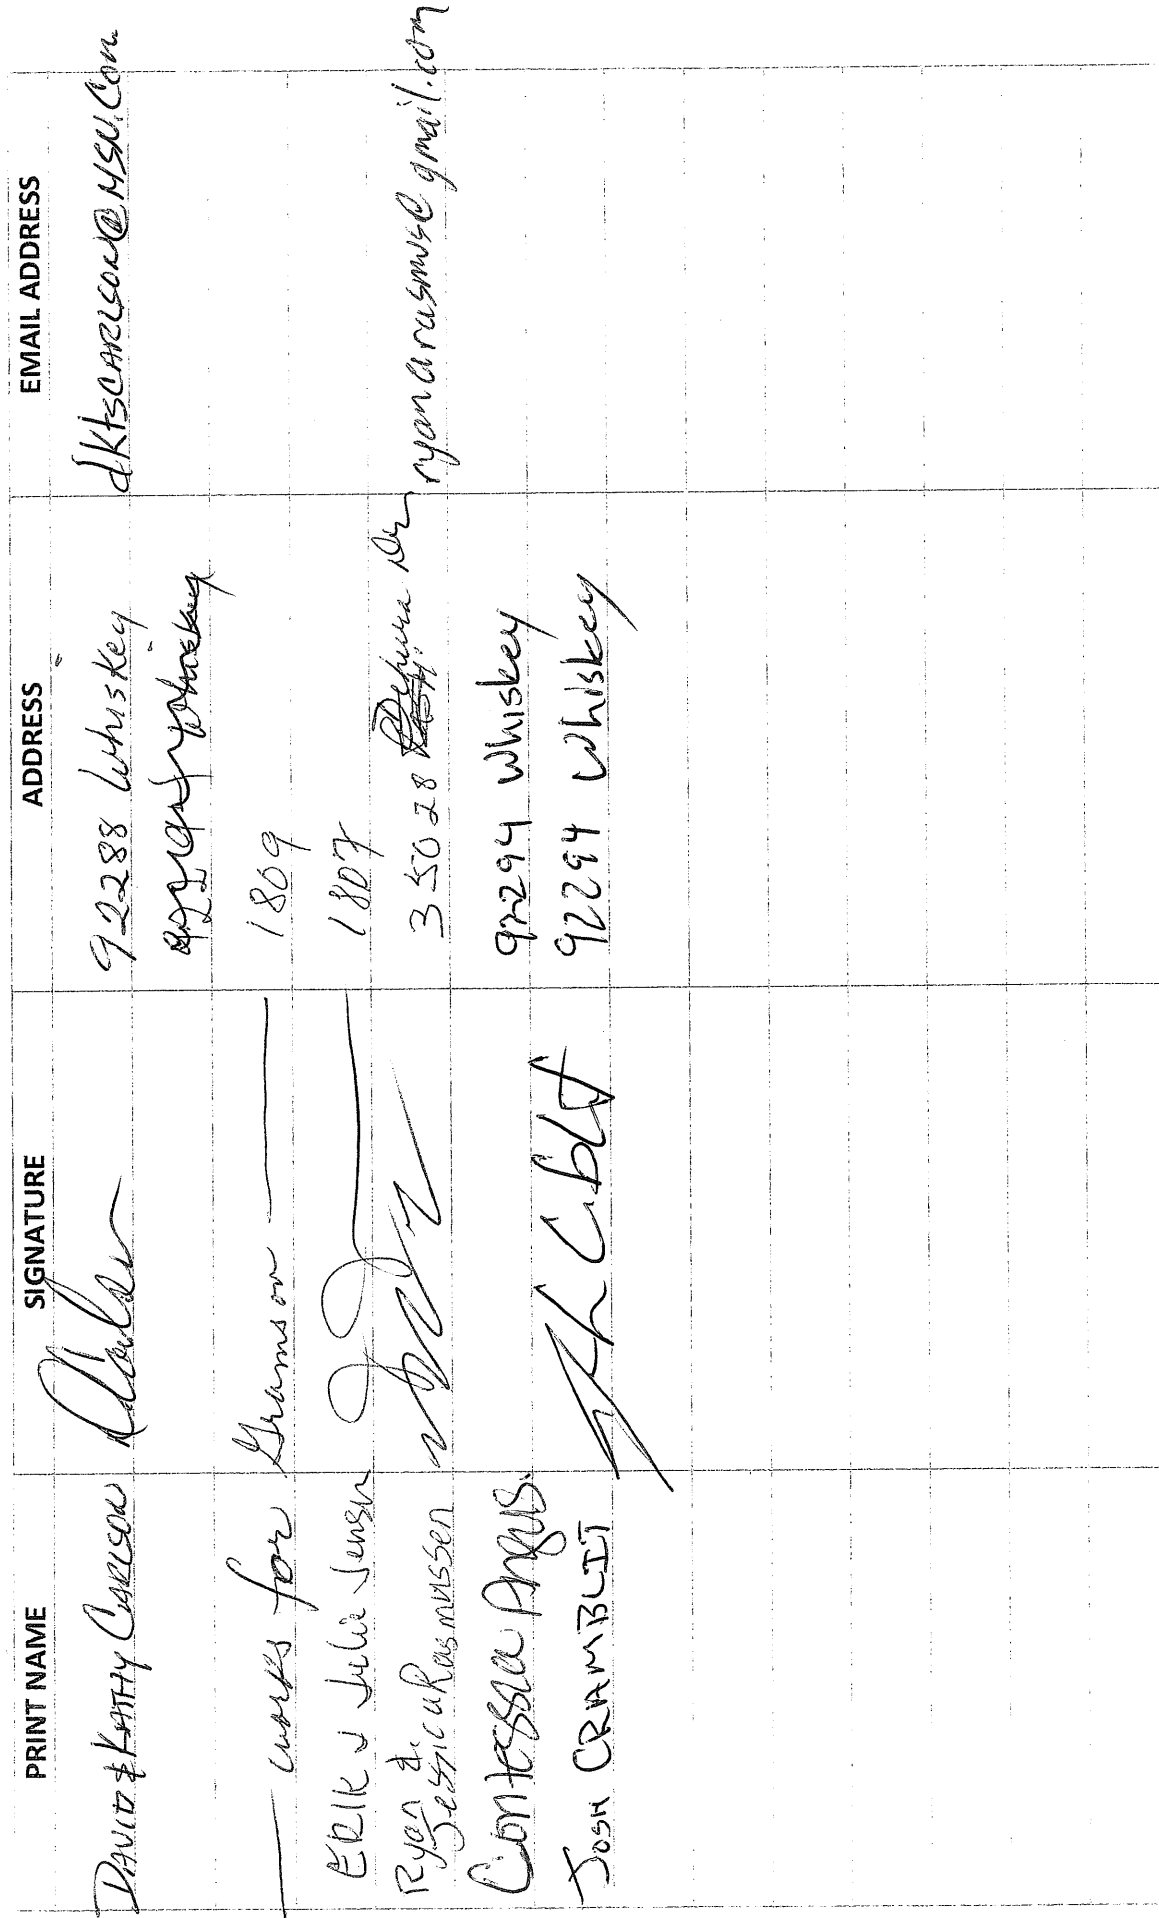 PRINT NAME SIGNATURE ADDRESS EMAIL ADDRESS
DAVID & KATHY CARLSON 92288 Whiskey dktscarlson@MSN.Com
works for Gramson 1809
ERIK & Julie Jensen 1807
Ryan & Jessica Rasmussen 35028 Dr ryanarasmus@gmail.com
Contessa Angus 92294 Whiskey
JOSH CRAMBLIT 92294 Whiskey